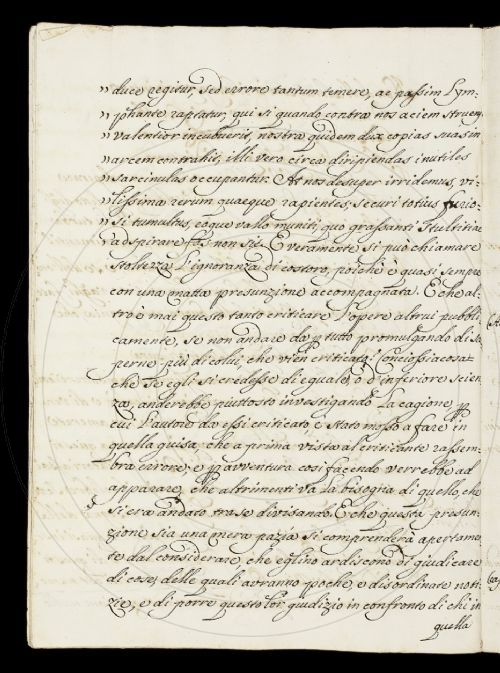 " duce regitur, sed errore tantum temere, ac passim Lym-
" phante raptatur, qui si quando contra nos aciem struens
" valentior incubuerit, nostra quidem dux copias suas in
" arcem contrahit, illi vero circa diripiendas inutiles
" sarcinulas occupantur. At nos desuper irridemus, vi-
" lissima rerum quaeque rapientes, securi totius furio-
" si tumultus, eoque vallo muniti, quo grassanti stultitiae
" adspirare fas non sit. E veramente si può chiamare
Stoltezza l'ignoranza di costoro, poichè è quasi sempre
con una matta presunzione accompagnata. E che al-
tro è mai questo tanto criticare l'opere altrui pubbli-
camente, se non andare da p tutto promulgando di sa-
perne più di colui, che vien criticato? Conciossiacosa-
che se egli si credesse di eguale, o d'inferiore scien-
za, anderebbe piuttosto investigando la cagione p
cui l'autore da essi criticato è stato mosso a fare in
quella guisa, che a prima vista al criticante rassem-
bra errore, e p avventura così facendo verrebbe ad
apparare, che altrimenti va la bisogna di quello, che
si era andato tra se divisando. E che questa presun-
zione sia una mera pazzia si comprenderà apertamen-
te dal considerare, che eglino ardiscono di giudicare
di cose, delle quali avranno poche, e disordinate noti-
zie, e di porre questo lor giudizio in confronto di chi in
quella